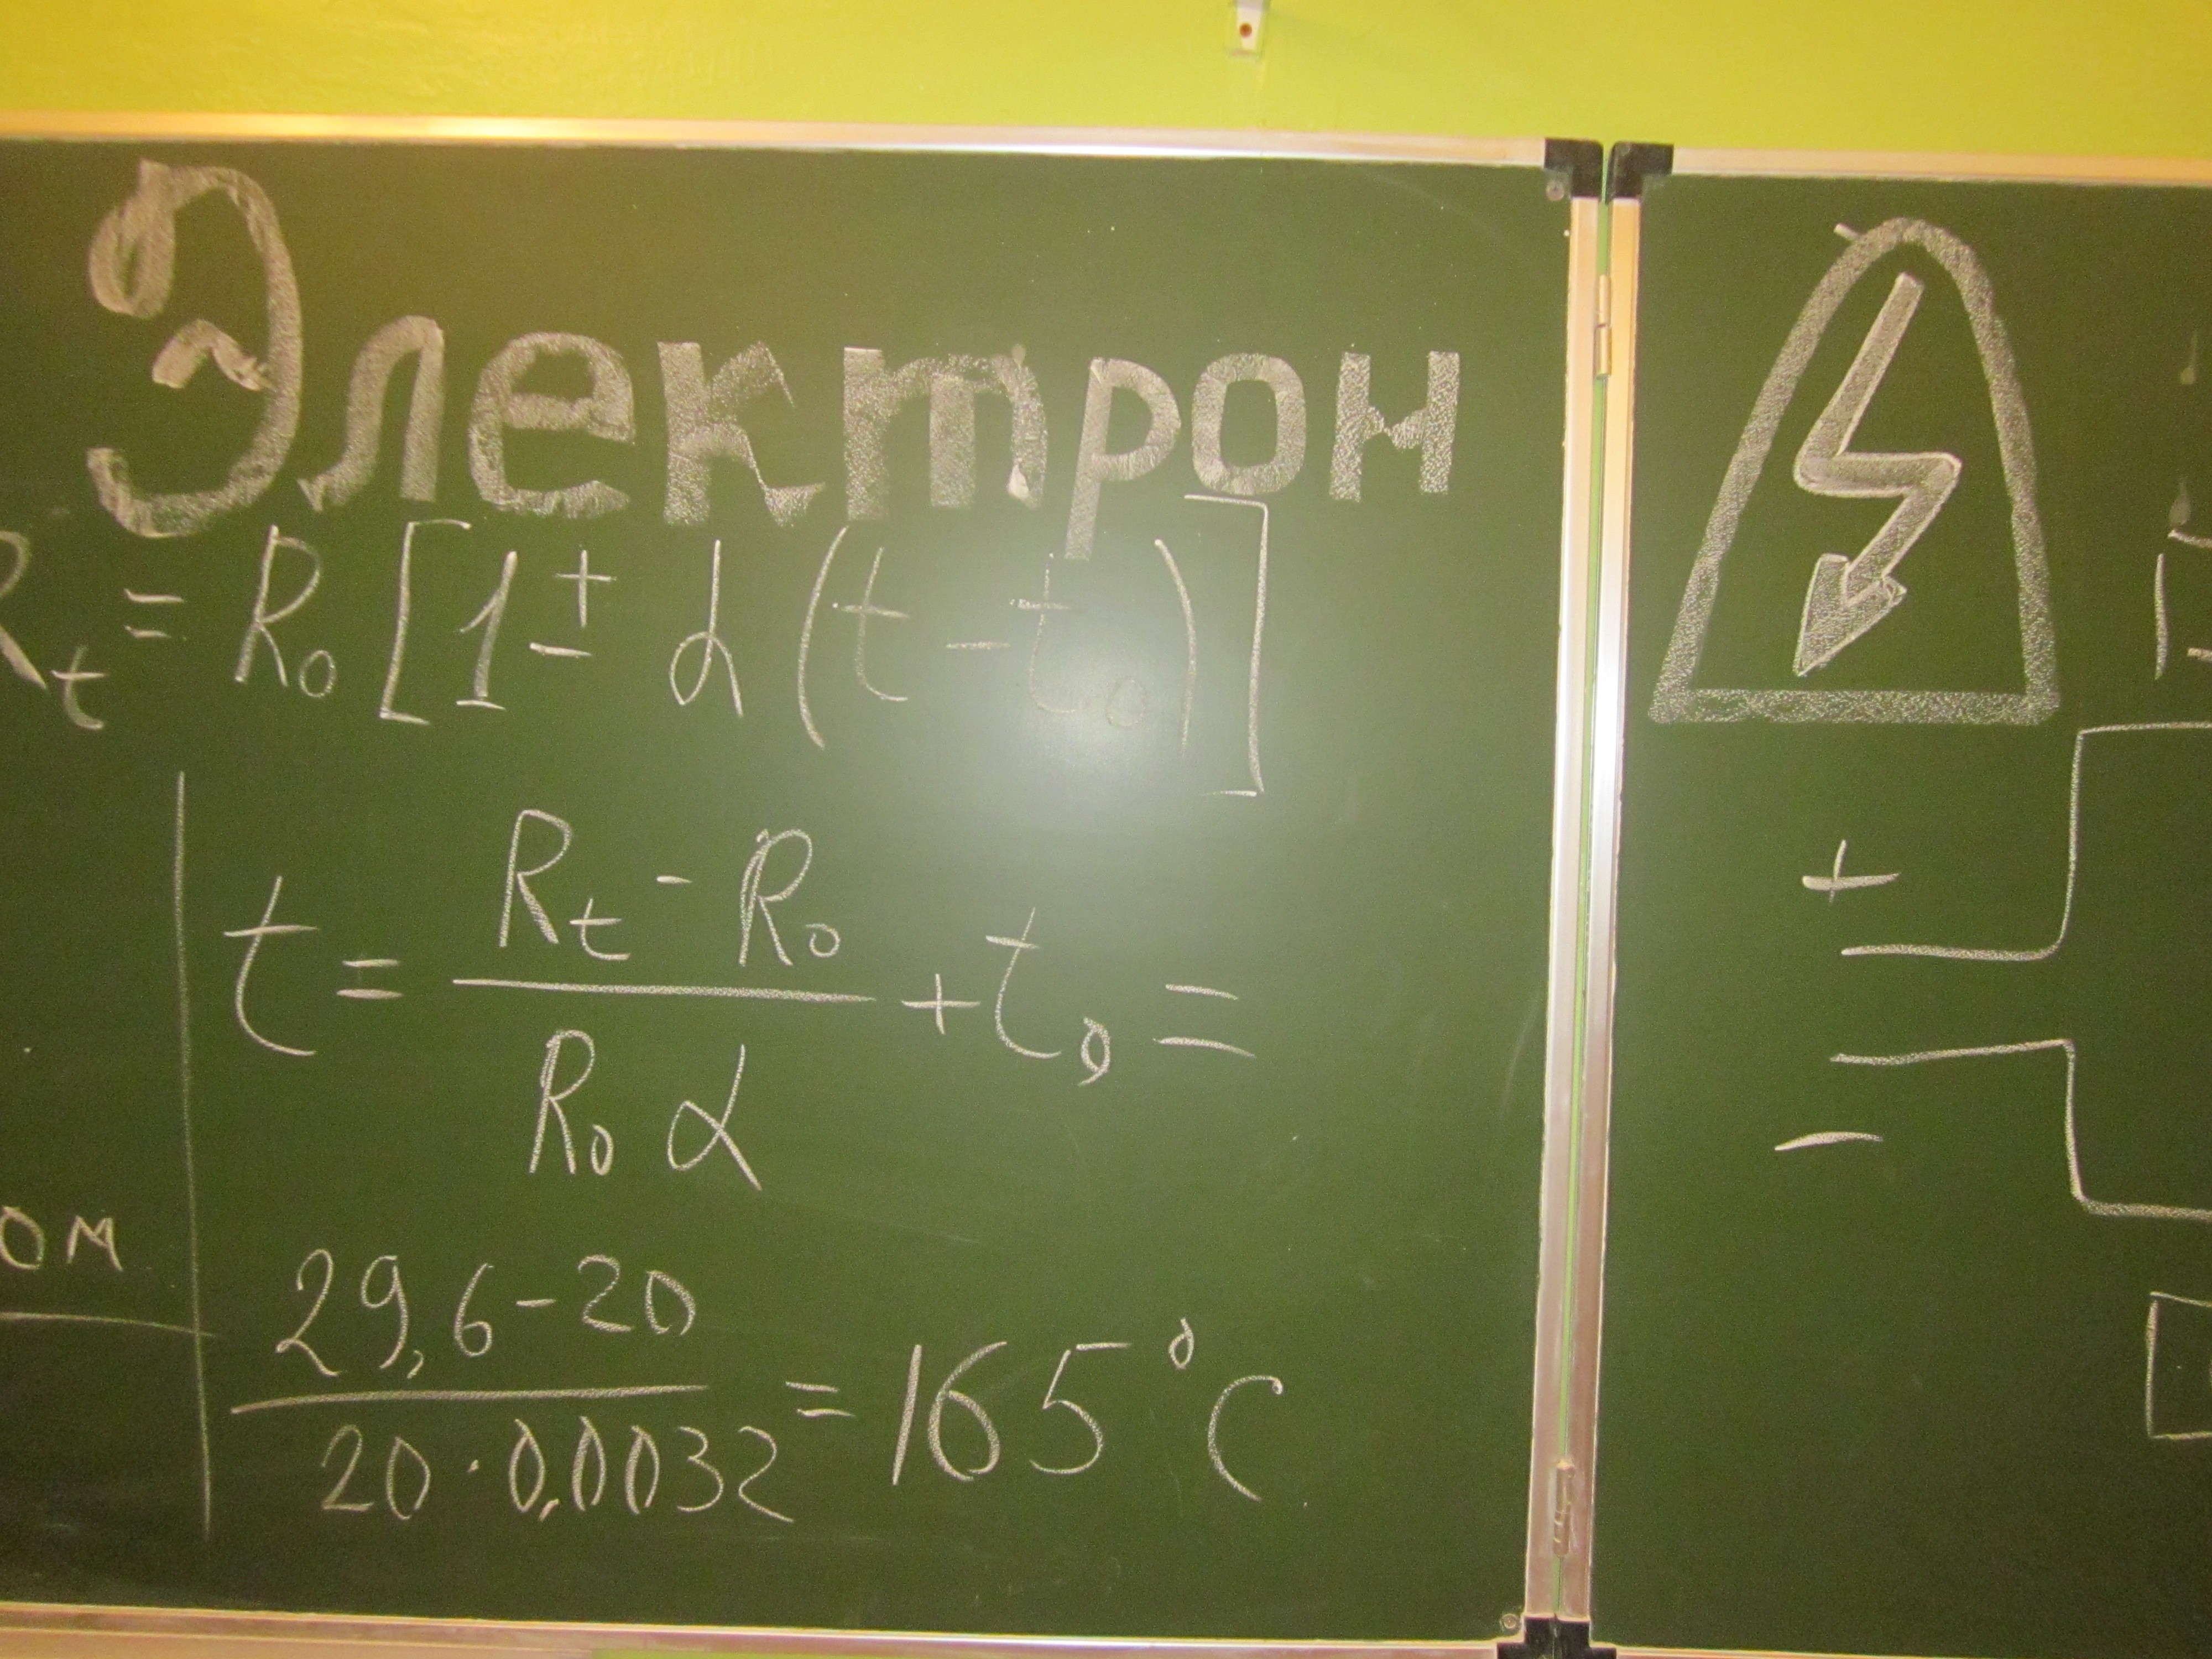 Электрон
R_t = R_0 [1 ± α (t - t_0)]
t = (R_t - R_0) / (R_0 α) + t_0 =
ом
(29,6 - 20) / (20 · 0,0032) = 165°C
+
-